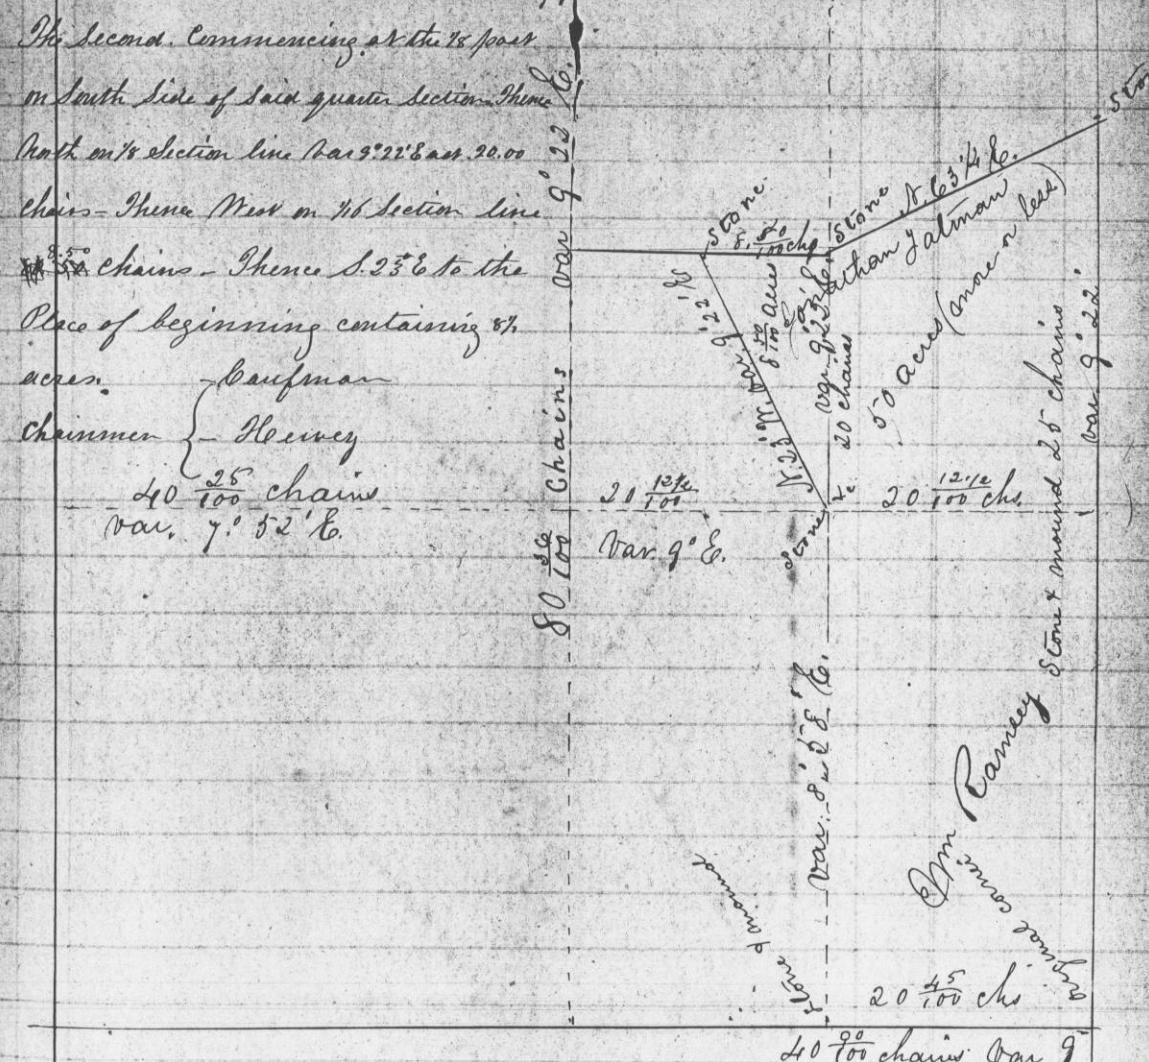 The Second. Commencing at the 1/8 post
on South Side of Said quarter Section Thence
North on 1/8 Section line Var 9° 22' East 20.00
Chains - Thence West on 1/16 Section line
8.50 Chains - Thence S. 23° E to the
Place of beginning containing 8½
acres.
- Caufman
Chainmen { - Hervey
40 25/100 chains
var. 7° 52' E.
80 56/100 Chains var 9° 22' E.
Stone
8. 50/100 chs
Stone
N. 63 1/4 E.
athan Yatman
50 acres (more or less)
N. 23° W. var 9° 22' E
8 50/100 acres
var 9° 23' E.
20 chains
20 12½/100
Var. 9° E.
20 12 1/2/100 chs.
Stone
Stone & mound 25 chains
var. 9° 22'
var. 8° 58' E.
Wm Ramsey
Stone & mound
original corner
20 45/100 chs
40 90/100 chains Var 9